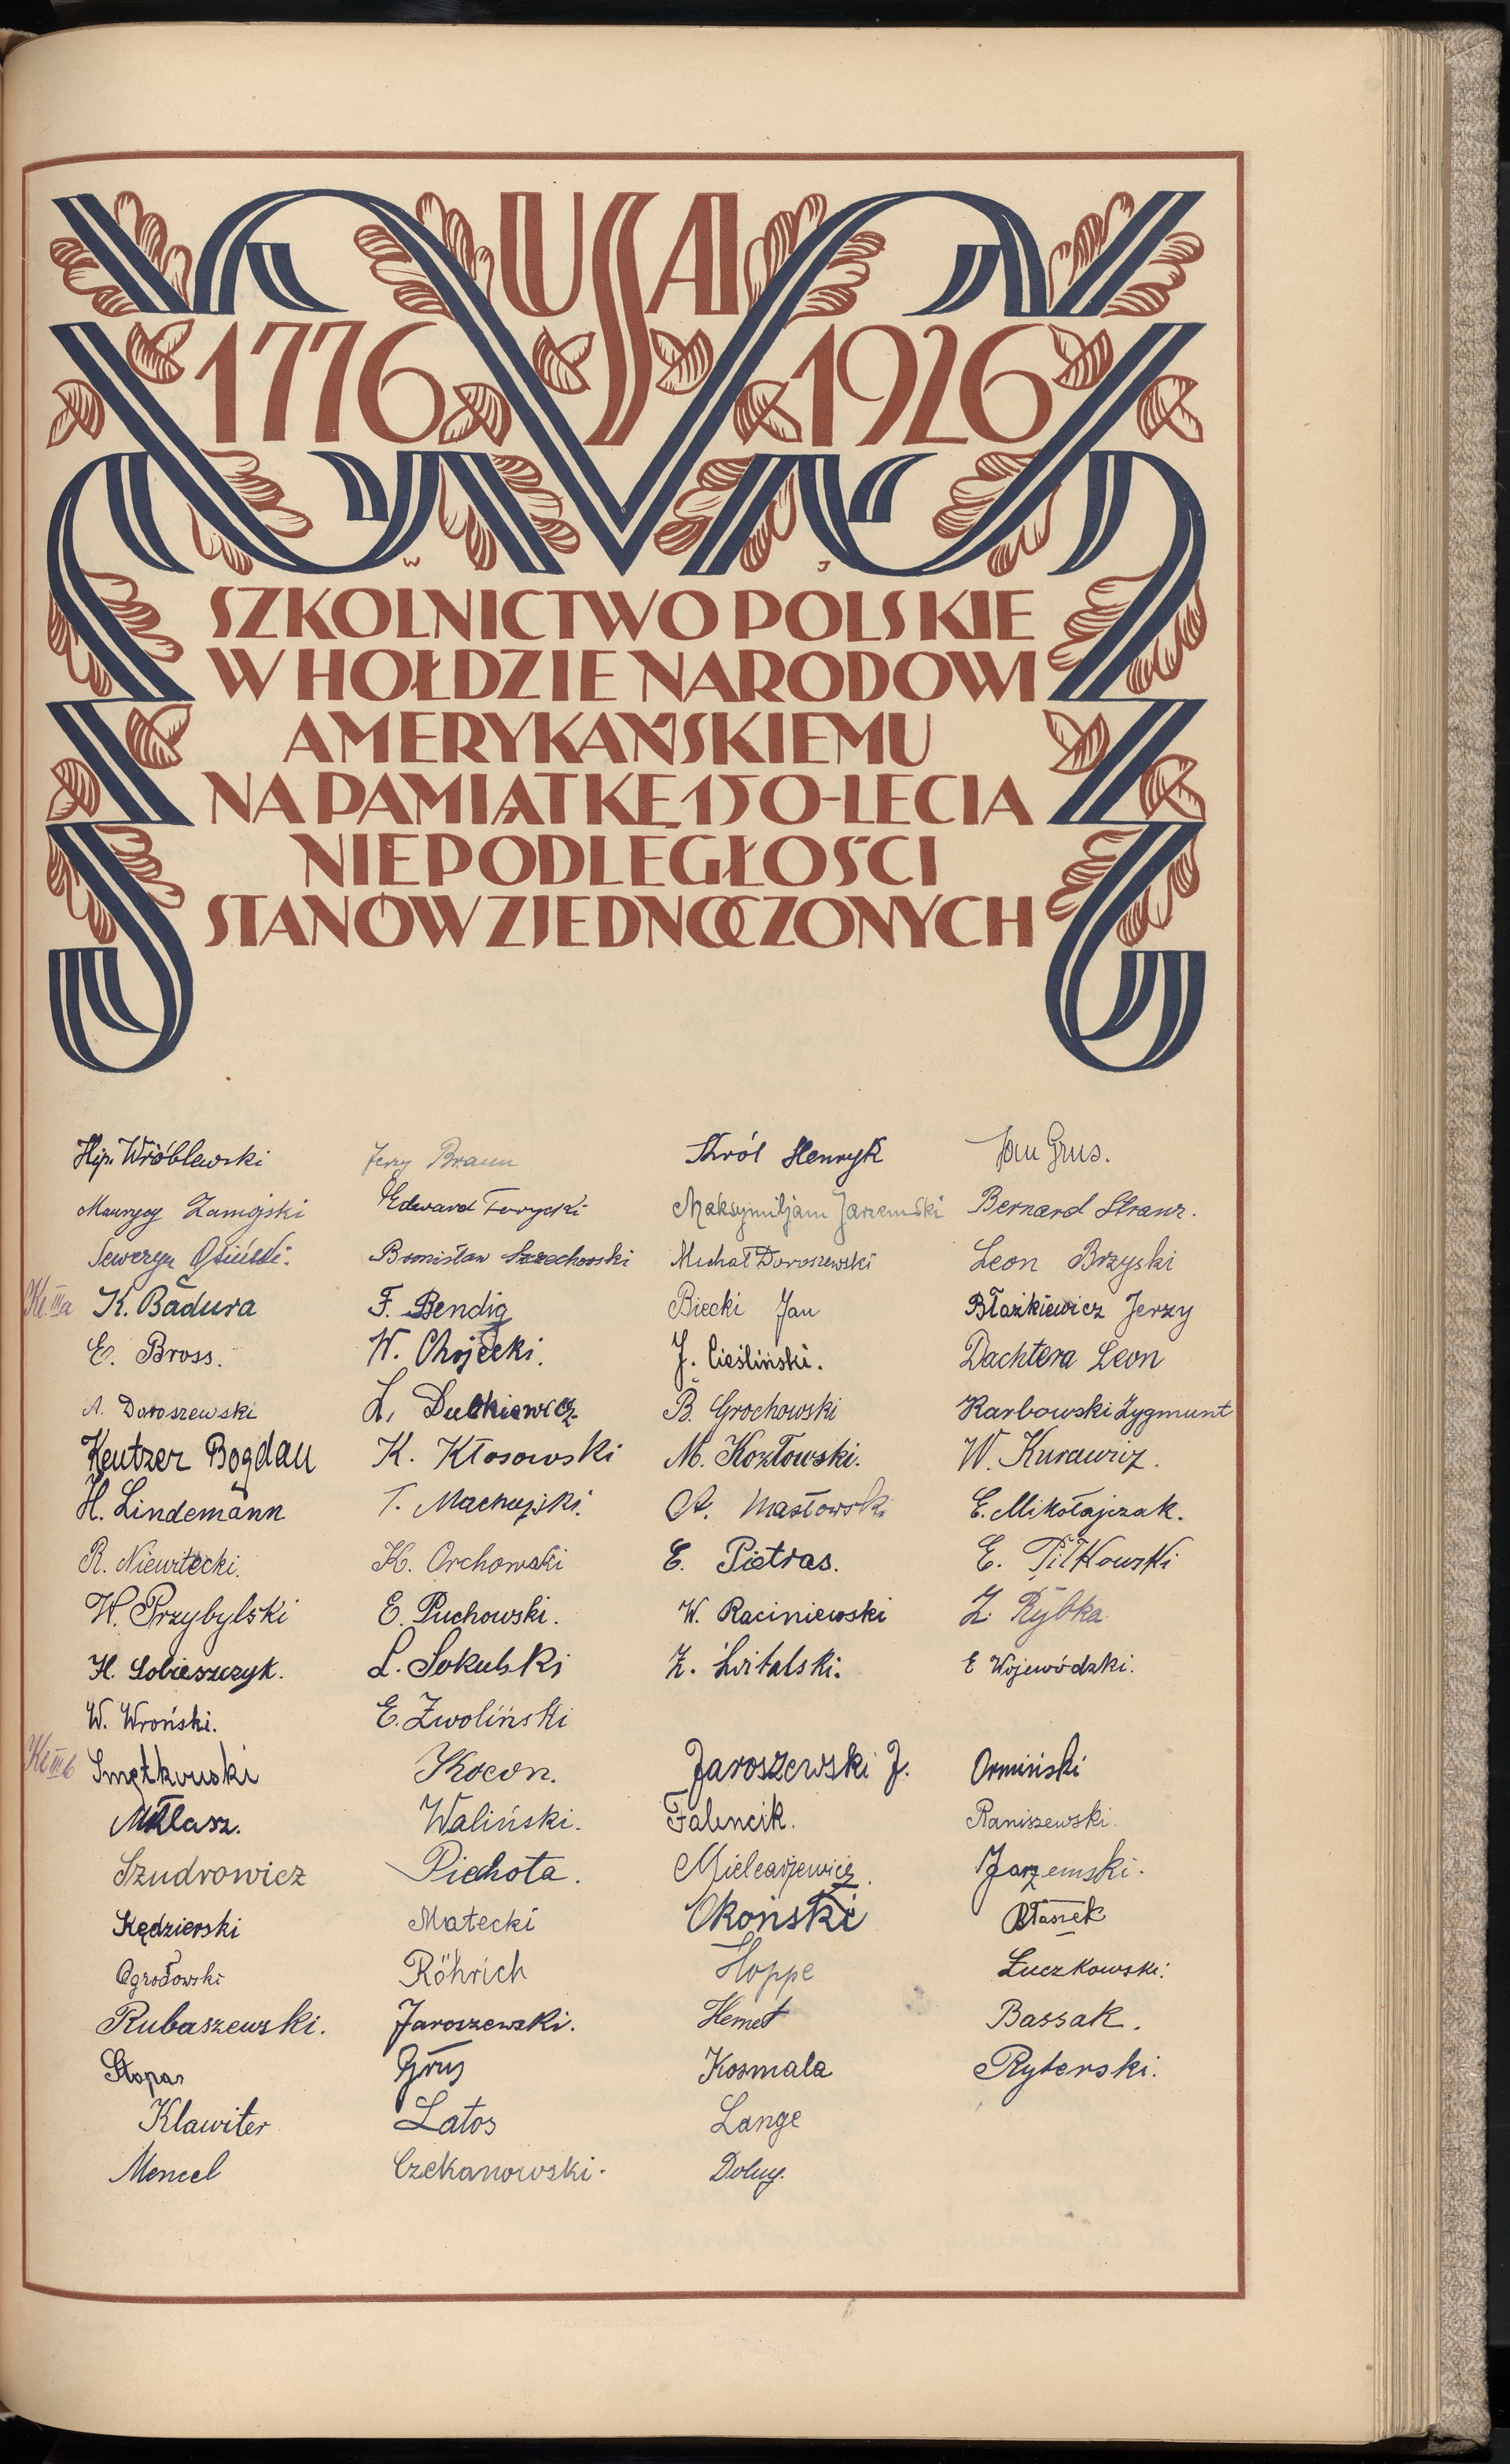 USA
1776 1926
W J
SZKOLNICTWO POLSKIE
W HOŁDZIE NARODOWI
AMERYKAŃSKIEMU
NA PAMIĄTKĘ 150-LECIA
NIEPODLEGŁOŚCI
STANÓW ZJEDNOCZONYCH
Hip. Wróblewski Jerzy Braun Król Henryk Jan Grus.
Maurycy Zamojski Edward Maksymiljam Jarzemski Bernard Stranz.
Seweryn Bronisław Michał Doroszewski Leon Brzyski
Kl. IIIa K. Badura F. Bendig Biecki Jan Błażkiewicz Jerzy
E. Bross. W. Chojecki. J. Cieśliński. Dachtera Leon
A. Doroszewski L. Dutkiewicz B. Grochowski Karbowski Zygmunt
Keutzer Bogdan K. Kłosowski M. Kozłowski. W. Kurawicz.
H. Lindemann T. Machajski. A. Masłowski E. Mikołajczak.
R. Niewitecki. K. Orchowski E. Pietras. E. Piłkowski
W. Przybylski E. Puchowski. W. Raciniewski Z. Rybka
H. Sobieszczyk. L. Sokulski Z. Świtalski. E Wojewódzki.
W. Wroński. E. Zwoliński
Kl IIIb Smętkowski Kocon. Jaroszewski J. Ormiński
Waliński. Falencik. Raniszewski.
Szudrowicz Piechota. Mielcarzewicz. Jarzemski.
Kędzierski Matecki Okoński Błaszek
Ogrodowski Röhrich Hoppe Łuczkowski.
Rubaszewski. Jaroszewski. Hemet Bassak.
Stopar Grus Kosmala Ryterski.
Klawiter Latos Lange
Mencel Czekanowski.